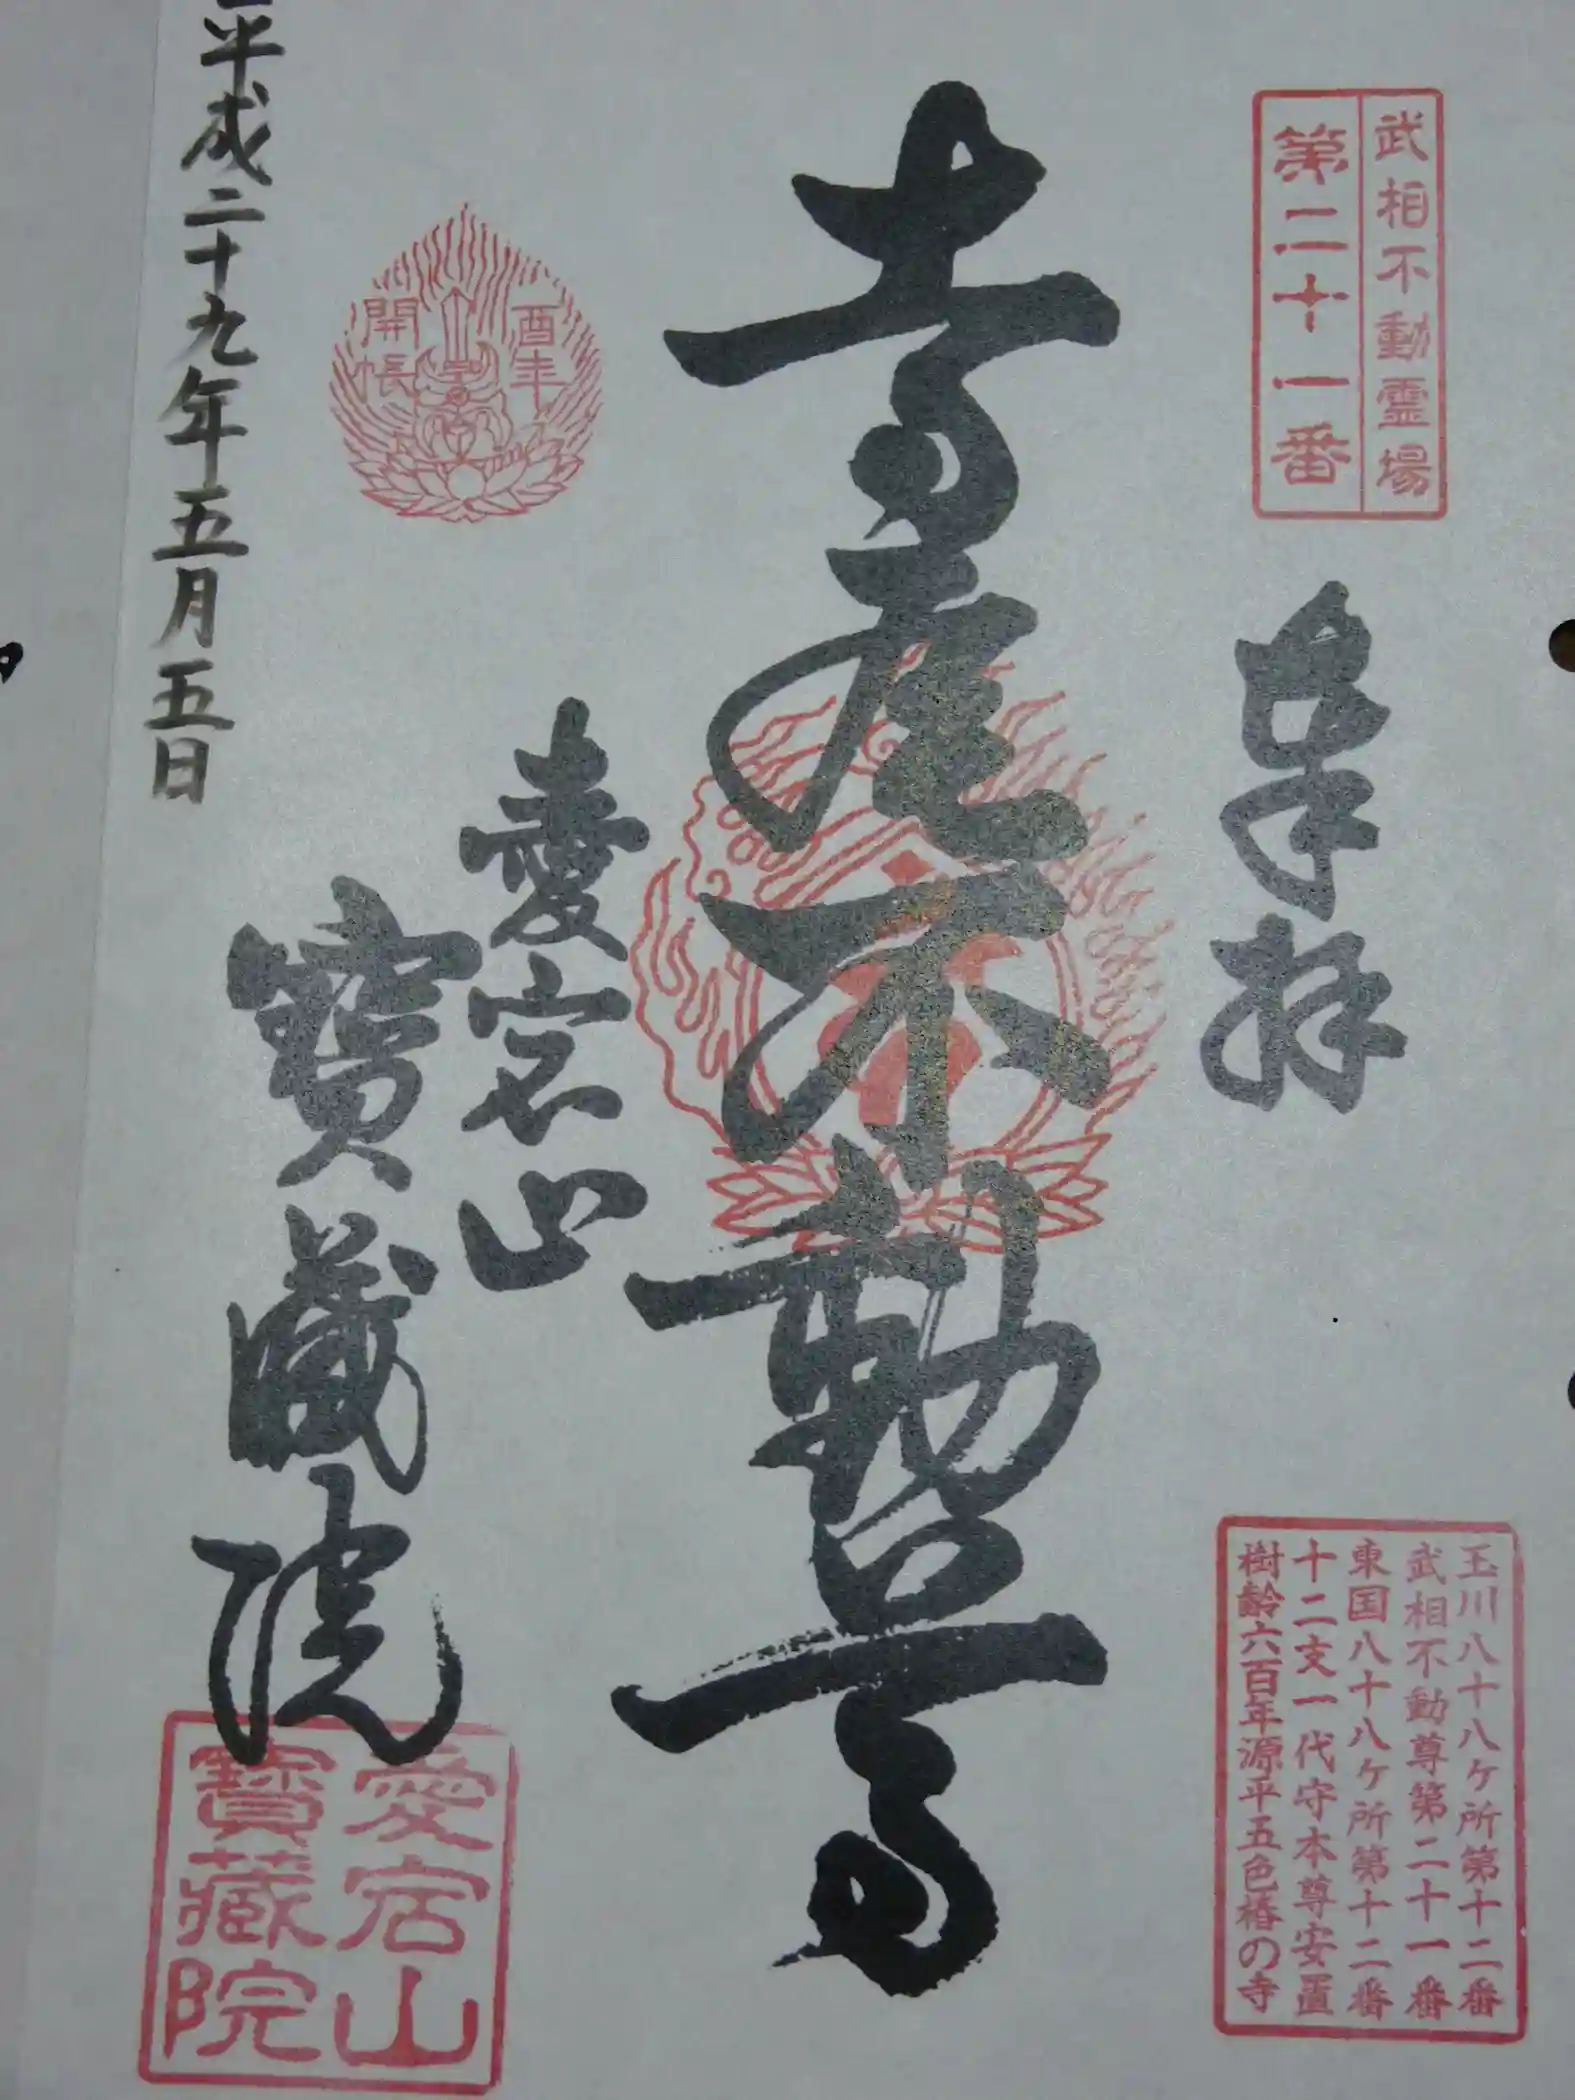 武相不動霊場
第二十一番
奉拝
玉川八十八ヶ所第十二番
武相不動尊第二十一番
東国八十八ヶ所第十二番
十二支一代守本尊安置
樹齢六百年源平五色椿の寺
不動尊
酉年
開帳
愛宕山
寳蔵院
愛宕山
寳藏院
平成二十九年五月五日